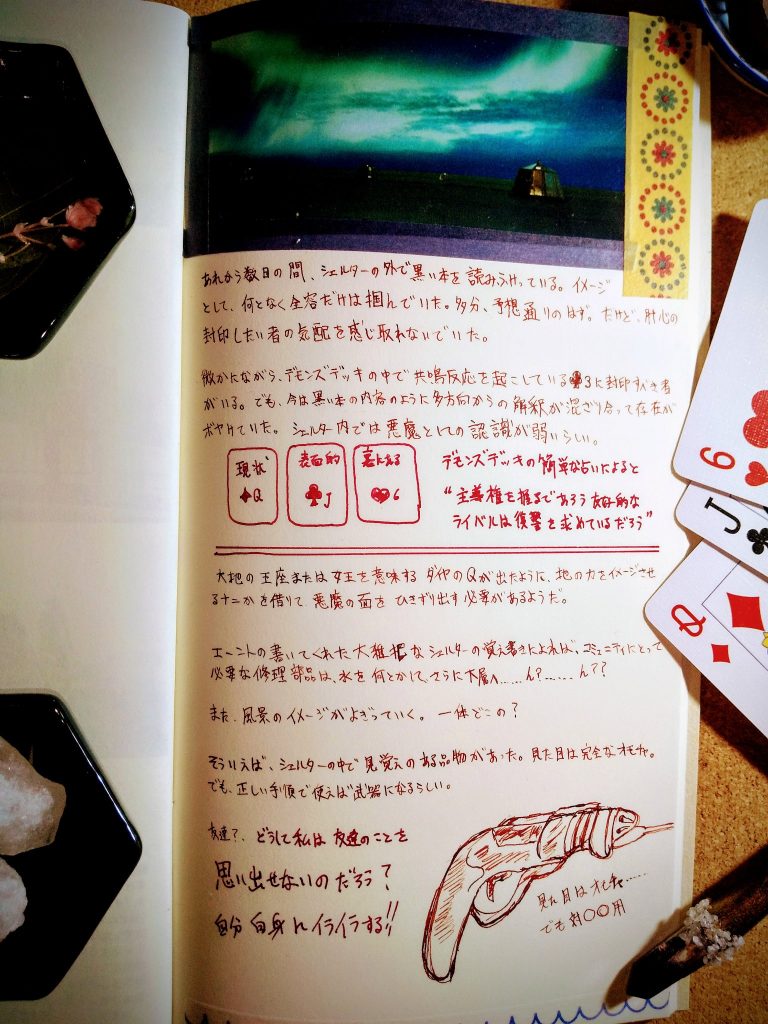 あれから数日の間、シェルターの外で黒い本を読みふけっている。イメージ
として、何となく全容だけは掴んでいた。多分、予想通りのはず。だけど、肝心の
封印したい者の気配を感じ取れないでいた。
微かにながら、デモンズデッキの中で共鳴反応を起こしている♣3に封印すべき者
がいる。でも、今は黒い本の内容のように多方向からの解釈が混ざり合って存在が
ボヤけていた。シェルター内では悪魔としての認識が弱いらしい。
現状
♦Q
表面的
♣J
裏にある
♥6
デモンズデッキの簡単な占いによると
“主導権を握るであろう友好的な
ライバルは復讐を求めているだろう”
大地の王座または女王を意味するダイヤのQが出たように、地の力をイメージさせ
るナニかを借りて悪魔の面をひきずり出す必要があるようだ。
エーントの書いてくれた大雑把なシェルターの覚え書きによれば、コミュニティにとって
必要な修理部品は、水を何とかして、さらに下層へ……ん?……ん??
また、風景のイメージがよぎっていく。一体どこの?
そういえば、シェルターの中で見覚えのある品物があった。見た目は完全なオモチャ。
でも、正しい手順で使えば武器になるらしい。
友達?、どうして私は友達のことを
思い出せないのだろう?
自分自身にイライラする!!
見た目はオモチャ……
でも対〇〇用
6
J
Q